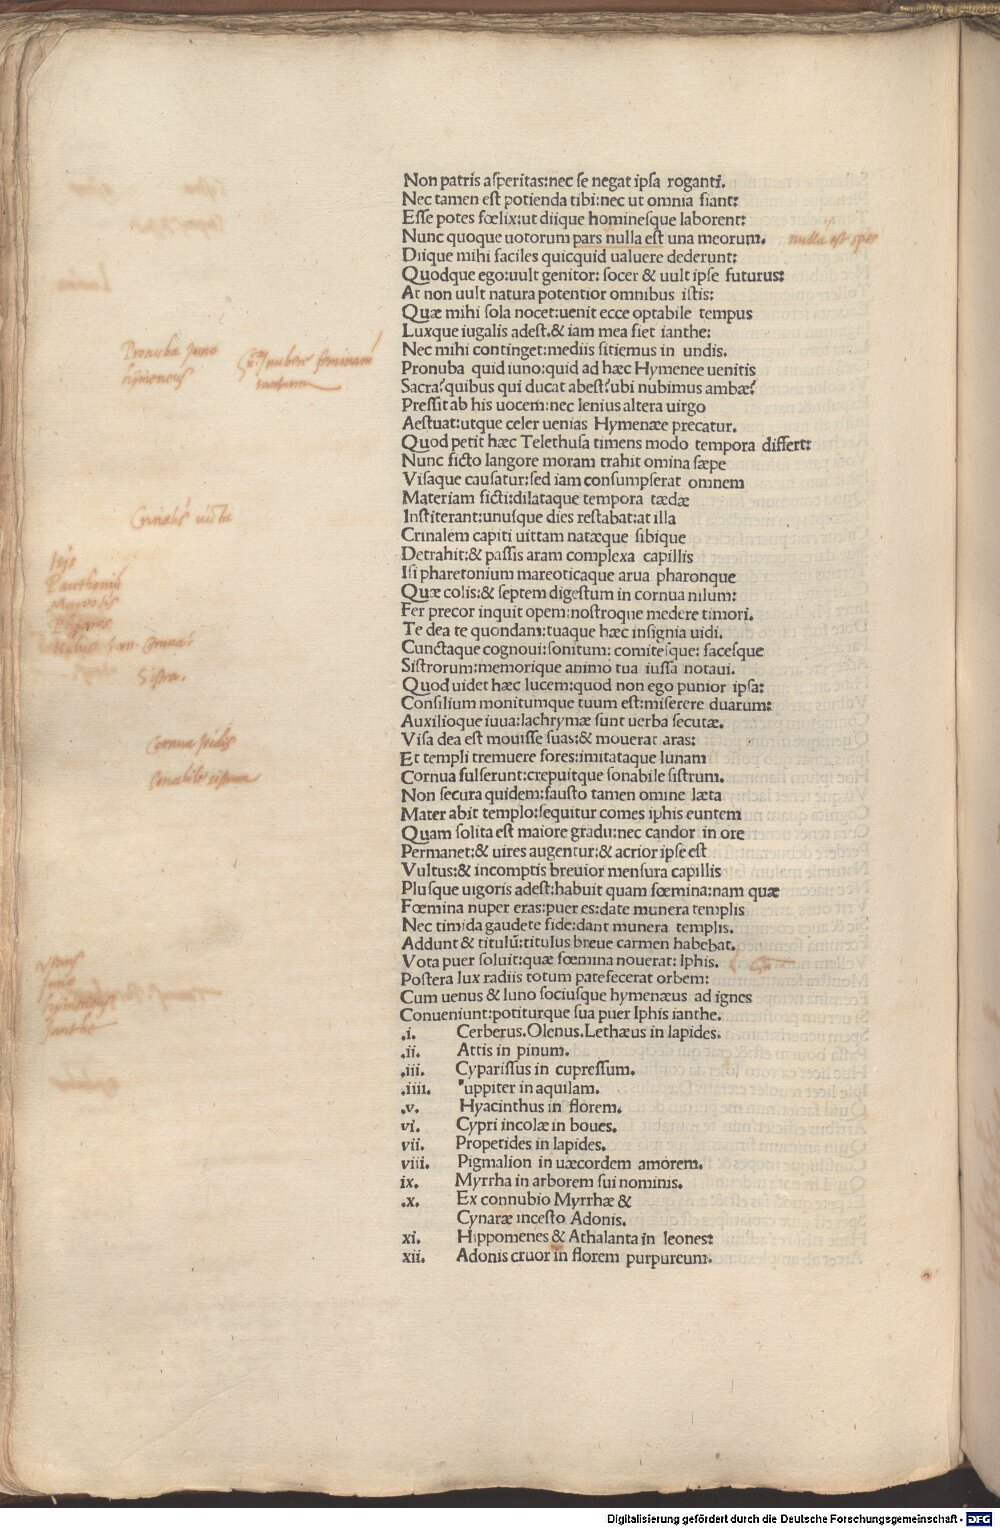 Non patris asperitas:nec se negat ipsa roganti.
Nec tamen est potienda tibi:nec ut omnia fiant:
Esse potes fœlix:ut diique hominesque laborent:
Nunc quoque uotorum pars nulla est una meorum. nulla est spes
Diique mihi faciles quicquid ualuere dederunt:
Quodque ego:uult genitor: socer & uult ipse futurus:
At non uult natura potentior omnibus istis:
Quæ mihi sola nocet:uenit ecce optabile tempus
Luxque iugalis adest.& iam mea fiet ianthe:
Nec mihi continget:mediis sitiemus in undis.
Pronuba Juno
hymeneus
nubere feminam
tantum
Pronuba quid iuno:quid ad hæc Hymenee uenitis
Sacra?quibus qui ducat abest?ubi nubimus ambæ?
Pressit ab his uocem:nec lenius altera uirgo
Aestuat:utque celer uenias Hymenæe precatur.
Quod petit hæc Telethusa timens modo tempora differt:
Nunc ficto langore moram trahit omina sæpe
Visaque causatur:sed iam consumpserat omnem
Materiam ficti:dilataque tempora tædæ
Institerant:unusque dies restabat:at illa
Crinalis uitta
Crinalem capiti uittam natæque sibique
Detrahit:& passis aram complexa capillis
Isis
Isi pharetonium mareoticaque arua pharonque
Quæ colis:& septem digestum in cornua nilum:
Fer precor inquit opem:nostroque medere timori.
Te dea te quondam:tuaque hæc insignia uidi.
Cunctaque cognoui:sonitum: comitesque: facesque
Sistrorum:memorique animo tua iussa notaui.
Sistra.
Quod uidet hæc lucem:quod non ego punior ipsa:
Consilium monitumque tuum est:miserere duarum:
Auxilioque iuua:lachrymæ sunt uerba secutæ.
Visa dea est mouisse suas:& mouerat aras:
Cornua Isidis
Et templi tremuere fores:imitataque lunam
Cornua fulserunt:crepuitque sonabile sistrum.
sonabile sistrum
Non secura quidem:fausto tamen omine læta
Mater abit templo:sequitur comes iphis euntem
Quam solita est maiore gradu:nec candor in ore
Permanet:& uires augentur:& acrior ipse est
Vultus:& incomptis breuior mensura capillis
Plusque uigoris adest:habuit quam fœmina:nam quæ
Fœmina nuper eras:puer es:date munera templis
Nec timida gaudete fide:dant munera templis.
Addunt & titulū:titulus breue carmen habebat.
Vota puer soluit:quæ fœmina nouerat: Iphis.
Postera lux radiis totum patefecerat orbem:
Venus
Juno
hymeneus
Ianthe
Cum uenus & Iuno sociusque hymenæus ad ignes
Conueniunt:potiturque sua puer Iphis ianthe.
.i. Cerberus.Olenus.Lethæus in lapides.
.ii. Attis in pinum.
.iii. Cyparissus in cupressum.
.iiii. uppiter in aquilam.
.v. Hyacinthus in florem.
vi. Cypri incolæ in boues.
vii. Propetides in lapides.
viii. Pigmalion in uæcordem amorem.
ix. Myrrha in arborem sui nominis.
.x. Ex connubio Myrrhæ &
Cynaræ incesto Adonis.
xi. Hippomenes & Athalanta in leones:
xii. Adonis cruor in florem purpureum.
Digitalisierung gefördert durch die Deutsche Forschungsgemeinschaft - DFG